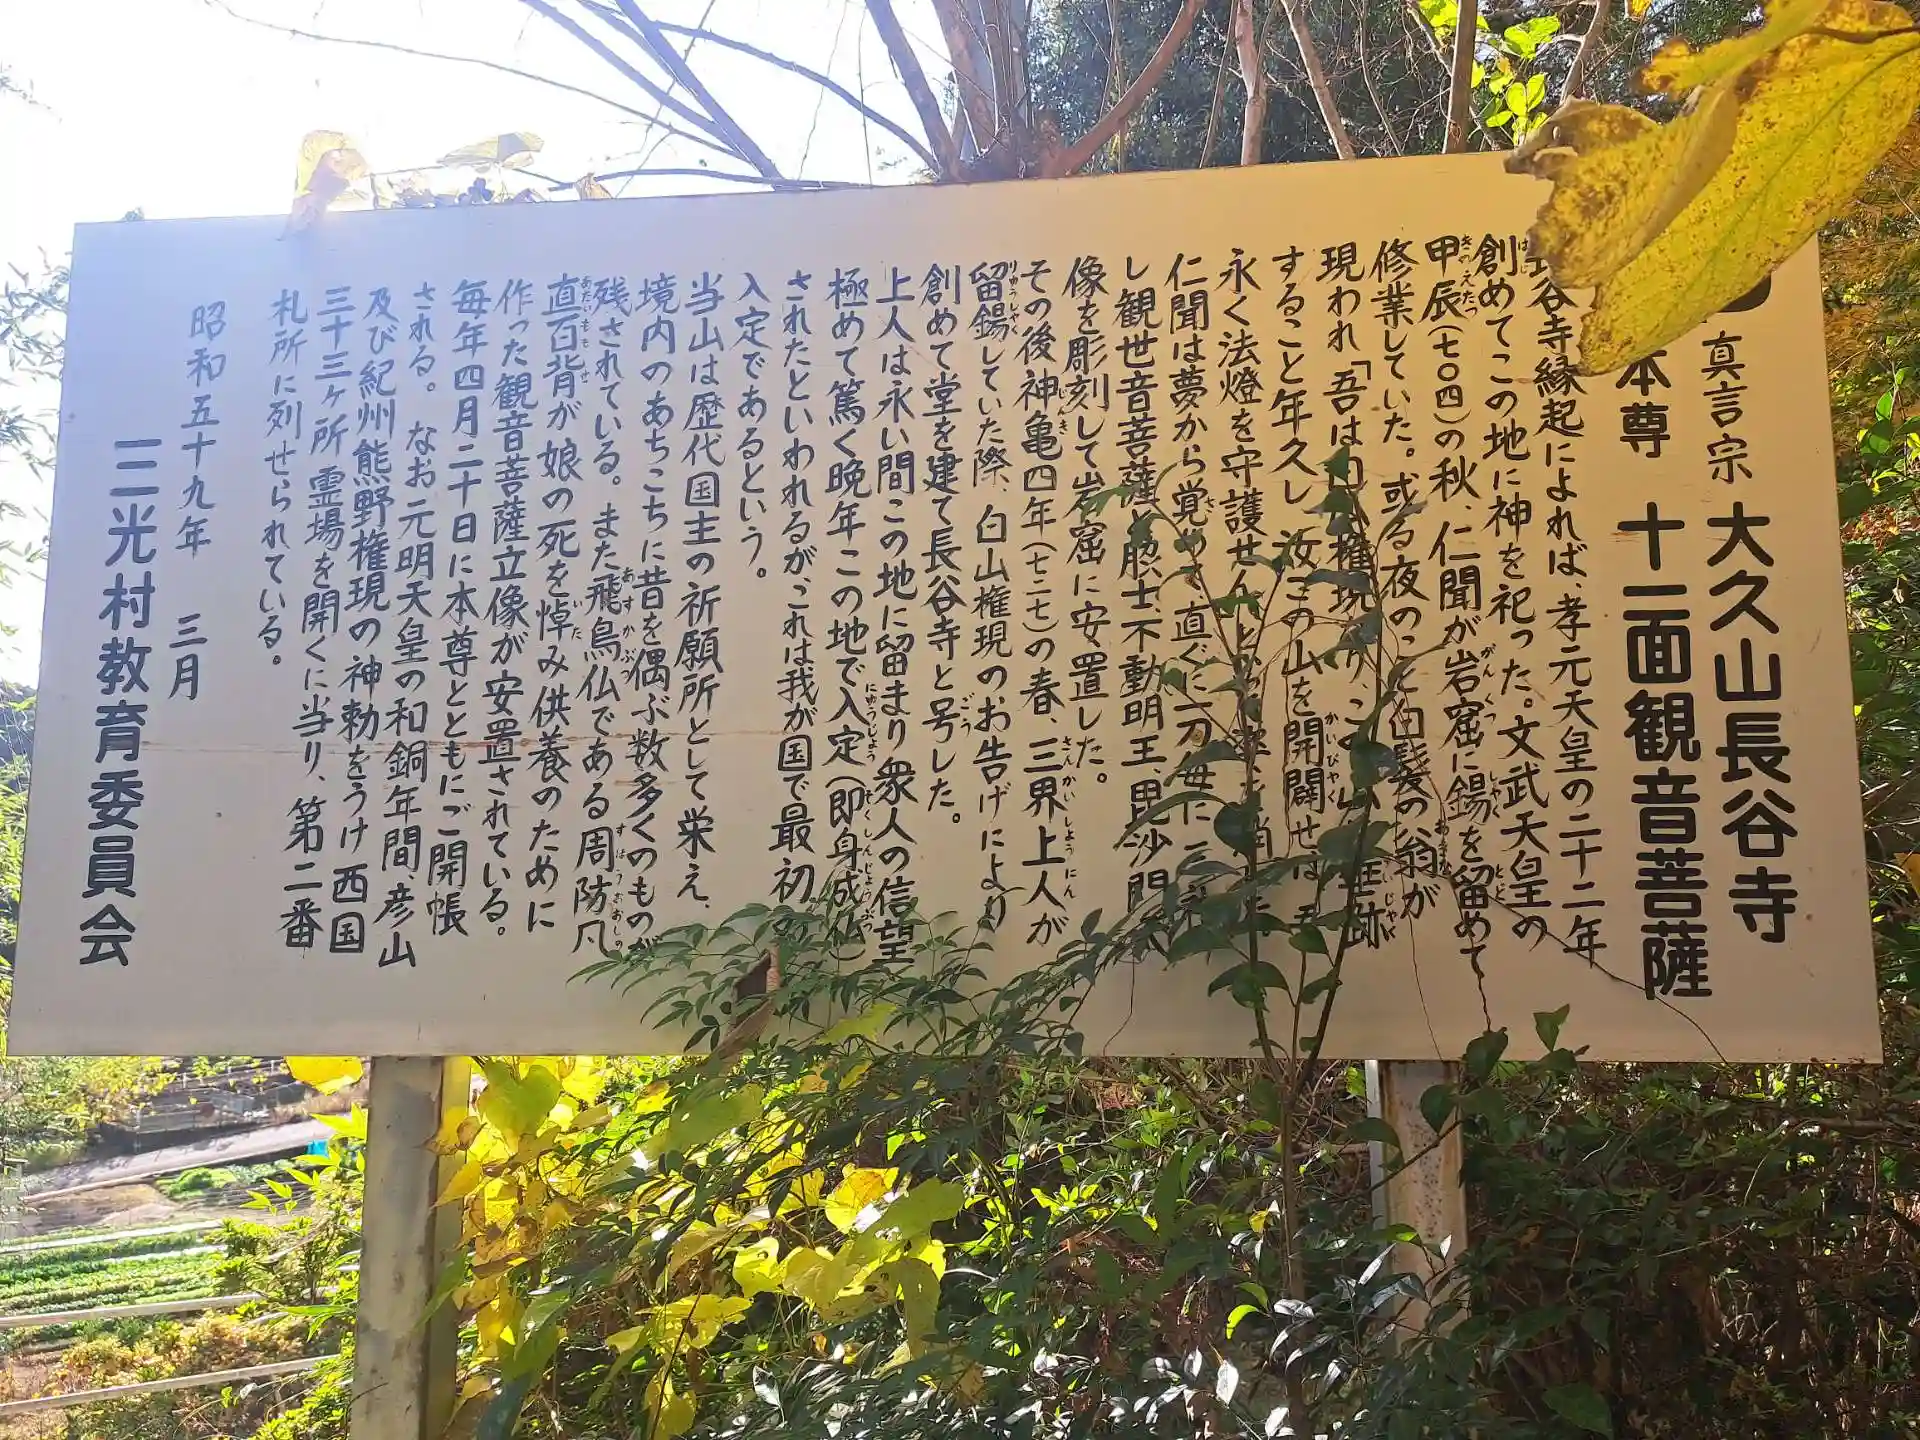 真言宗 大久山長谷寺
本尊 十一面観音菩薩
谷寺縁起によれば、孝元天皇の二十二年
創めてこの地に神を祀った。文武天皇の
甲辰(七〇四)の秋、仁聞が岩窟に錫を留めて
修業していた。或る夜のこと白髪の翁が
現われ「吾は白 権現 り、この山 垂跡
すること年久し 汝この山を開闢せば 吾
永く法燈を守護せん と
仁聞は夢から覚めて、直ぐに一刀毎に三礼
し観世音菩薩 脇士、不動明王、毘沙門天
像を彫刻して岩窟に安置した。
その後神亀四年(七二七)の春、三界上人が
留錫していた際、白山権現のお告げにより
創めて堂を建て長谷寺と号した。
上人は永い間この地に留まり衆人の信望
極めて篤く晩年この地で入定(即身成仏)
されたといわれるが、これは我が国で最初の
入定であるという。
当山は歴代国主の祈願所として栄え、
境内のあちこちに昔を偶ぶ数多くのものが
残されている。また飛鳥仏である周防凡
直百背が娘の死を悼み供養のために
作った観音菩薩立像が安置されている。
毎年四月二十日に本尊とともにご開帳
される。なお元明天皇の和銅年間彦山
及び紀州熊野権現の神勅をうけ西国
三十三ヶ所霊場を開くに当り、第二番
札所に列せられている。
昭和五十九年 三月
三光村教育委員会